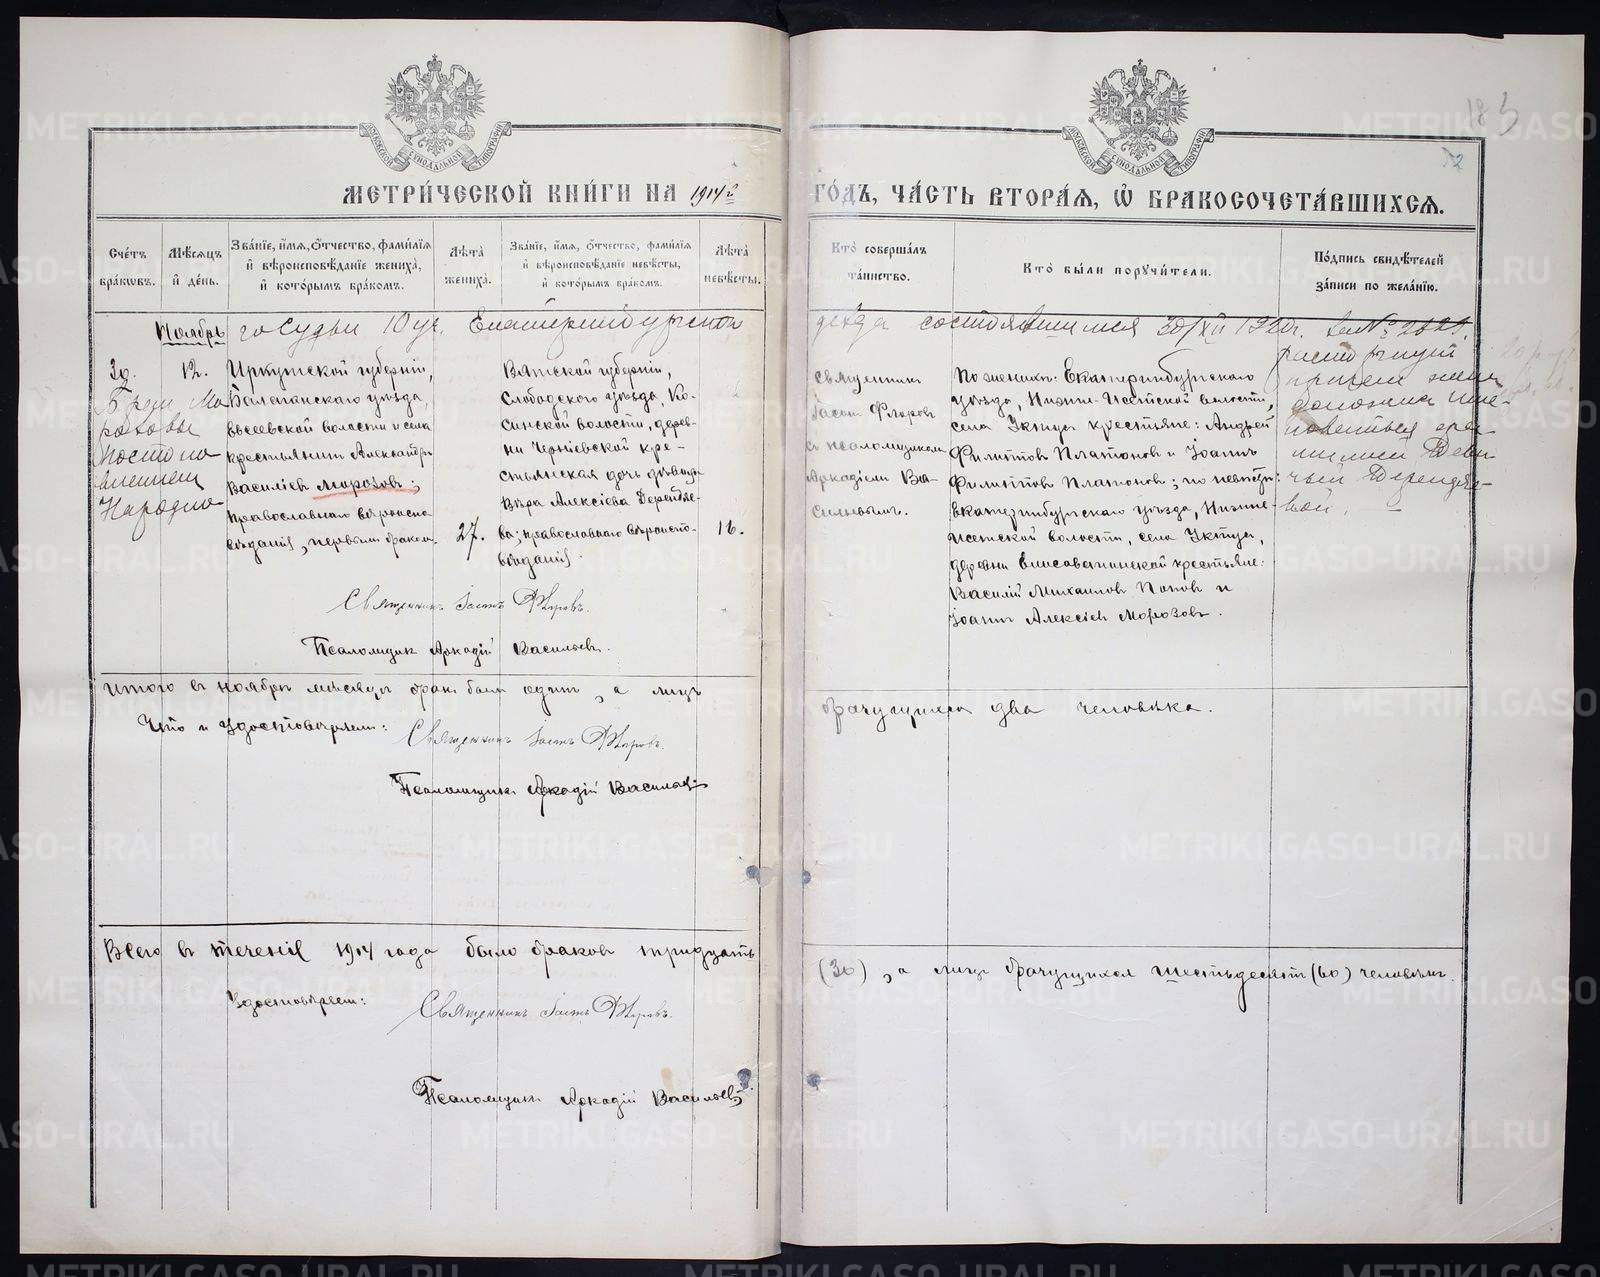 МОСКОВСКОЙ СѴНОДАЛЬНОЙ ТИПОГРАФИИ
МОСКОВСКОЙ СѴНОДАЛЬНОЙ ТИПОГРАФИИ
183
МЕТРИ́ЧЕСКОЙ КНИ́ГИ НА 1914й ГО́ДЪ, ЧА́СТЬ ВТОРА́Я, Ѡ҆ БРАКОСОЧЕТА́ВШИХСЯ.
Сче́тъ бра́кѡвъ.
Мѣ́сяцъ и҆ де́нь.
Зва́нїе, и҆́мя, ѻ҆́тчество, фами́лїя и҆ вѣроисповѣ́данїе жениха̀, и҆ кото́рымъ бра́комъ.
Лѣ́та жениха̀.
Зва́нїе, и҆́мя, ѻ҆́тчество, фами́лїя и҆ вѣроисповѣ́данїе невѣ́сты, и҆ кото́рымъ бра́комъ.
Лѣ́та невѣ́сты.
Кто̀ соверша́лъ та́инство.
Кто̀ бы́ли порꙋчи́тели.
По́дпись свидѣ́телей за́писи по жела́нїю.
Ноябрь
госудьи 10 уч. Екатеринбургскои
состоявшимся 30/XII 1920г. за № 2821
30.
Брак Мо-
розовы
постано
влением
Народно
12.
Иркутской губерніи,
Балаганскаго уѣзда,
волости и села
крестьянинъ Александръ
Василіевъ Морозовъ;
православнаго вѣроиспо
вѣданія, первымъ бракомъ.
27.
Вятской губерніи,
Слободского уѣзда, Ко-
синской волости, дерев-
ни Чернѣевской кре-
стьянская дочь дѣвица
Вѣра Алексіева Дерендяе-
ва; православнаго вѣроиспо-
вѣданія.
16.
Священникъ
Іаковъ Флоровъ
съ псаломщикомъ
Аркадіемъ Ва-
сильевымъ.
По женихѣ: Екатеринбургскаго
уѣзда, Нижне-Исетской волости,
села Уктуса крестьяне: Андрей
Филипповъ Платоновъ и Іоаннъ
Филипповъ Платоновъ; по невѣстѣ:
Екатеринбургскаго уѣзда, Нижне-
Исетской волости, села Уктуса,
деревни Елисаветинской крестьяне:
Василій Михаиловъ Поповъ и
Іоаннъ Алексіевъ Морозовъ.
расторгнут
причем жена
должна име-
новаться
Деви-
чьей Дерендяе-
вой.
Священникъ Флоровъ.
Псаломщикъ Аркадій Васильевъ.
Итого въ ноябрѣ мѣсяцѣ бракъ былъ одинъ, а лицъ брачущихся два человѣка.
Что и удостовѣряемъ:
Священникъ Флоровъ.
Псаломщикъ Аркадій Васильевъ.
Всего въ теченіе 1914 года было браковъ тридцать (30), а лицъ брачущихся шестьдесятъ (60) человѣкъ.
Удостовѣряемъ:
Священникъ Флоровъ.
Псаломщикъ Аркадій Васильевъ.
METRIKI.GASO-URAL.RU